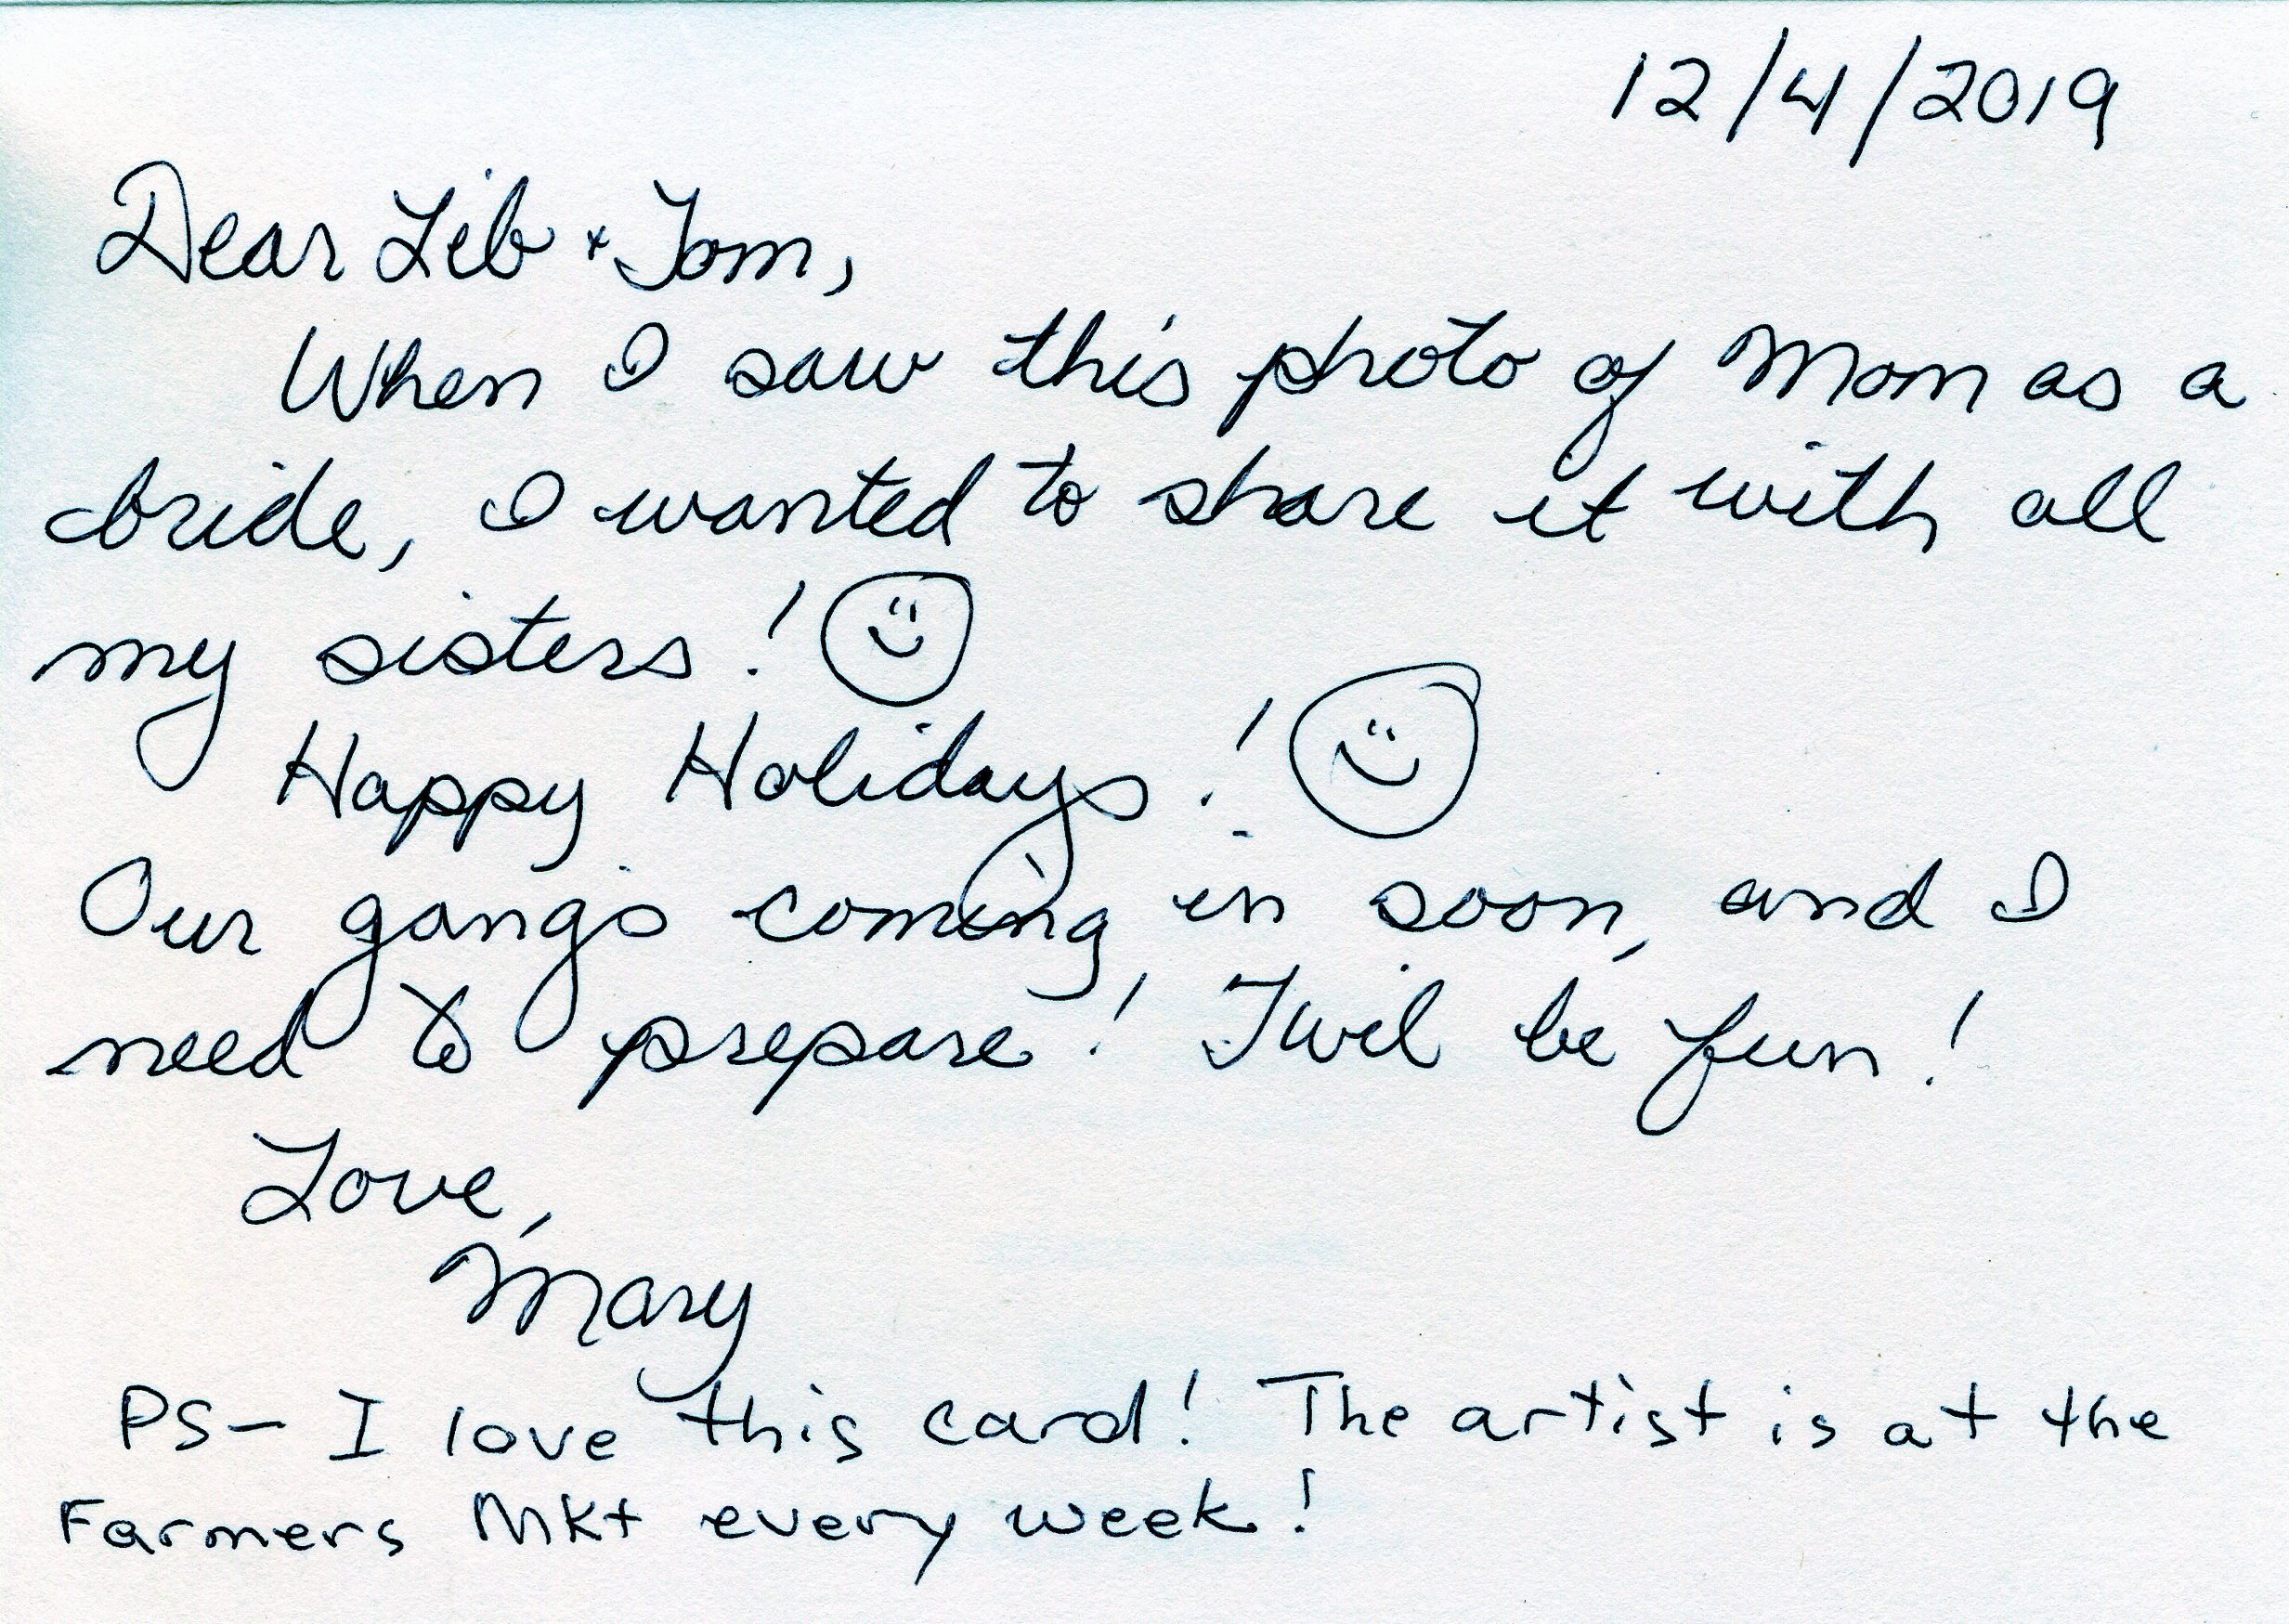 12/4/2019
Dear Lib + Tom,
When I saw this photo of Mom as a
bride, I wanted to share it with all
my sisters!
Happy Holidays!
Our gang's coming in soon, and I
need to prepare! Twil be fun!
Love,
Mary
PS- I love this card! The artist is at the
Farmers Mkt every week!